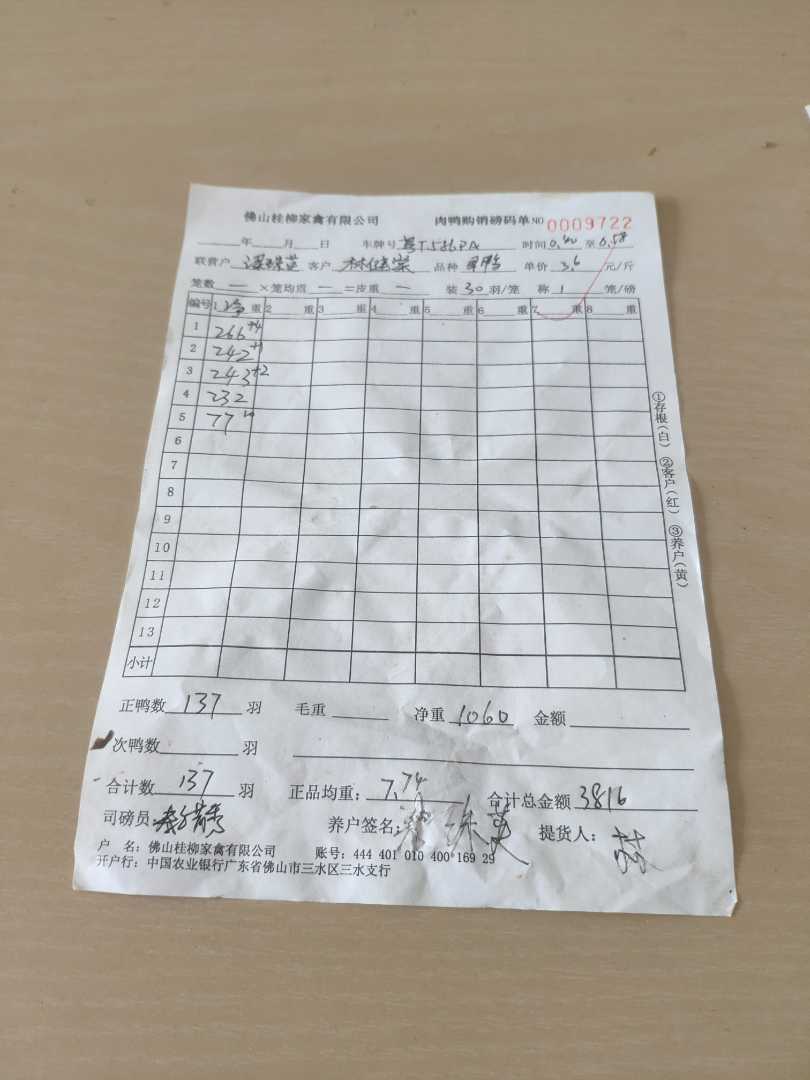 佛山桂柳家禽有限公司 肉鸭购销磅码单 NO 0009722
年 月 日 车牌号 时间 0.40 至 0.58
联营户 梁珠英 客户 品种 单价 3.6 元/斤
笼数 — ×笼均重 — =皮重 — 装 30 羽/笼 称 1 笼/磅
编号 1 重 2 重 3 重 4 重 5 重 6 重 7 重 8 重
1 266 +4
2 242 +1
3 243 +2
4 232
5 77
6
7
8
9
10
11
12
13
小计
①存根(白) ②客户(红) ③养户(黄)
正鸭数 137 羽 毛重 净重 1060 金额
次鸭数 羽
合计数 137 羽 正品均重: 7.74 合计总金额 3816
司磅员: 养户签名: 梁珠英 提货人:
户 名: 佛山桂柳家禽有限公司 账号: 444 401 010 400 169 29
开户行: 中国农业银行广东省佛山市三水区三水支行